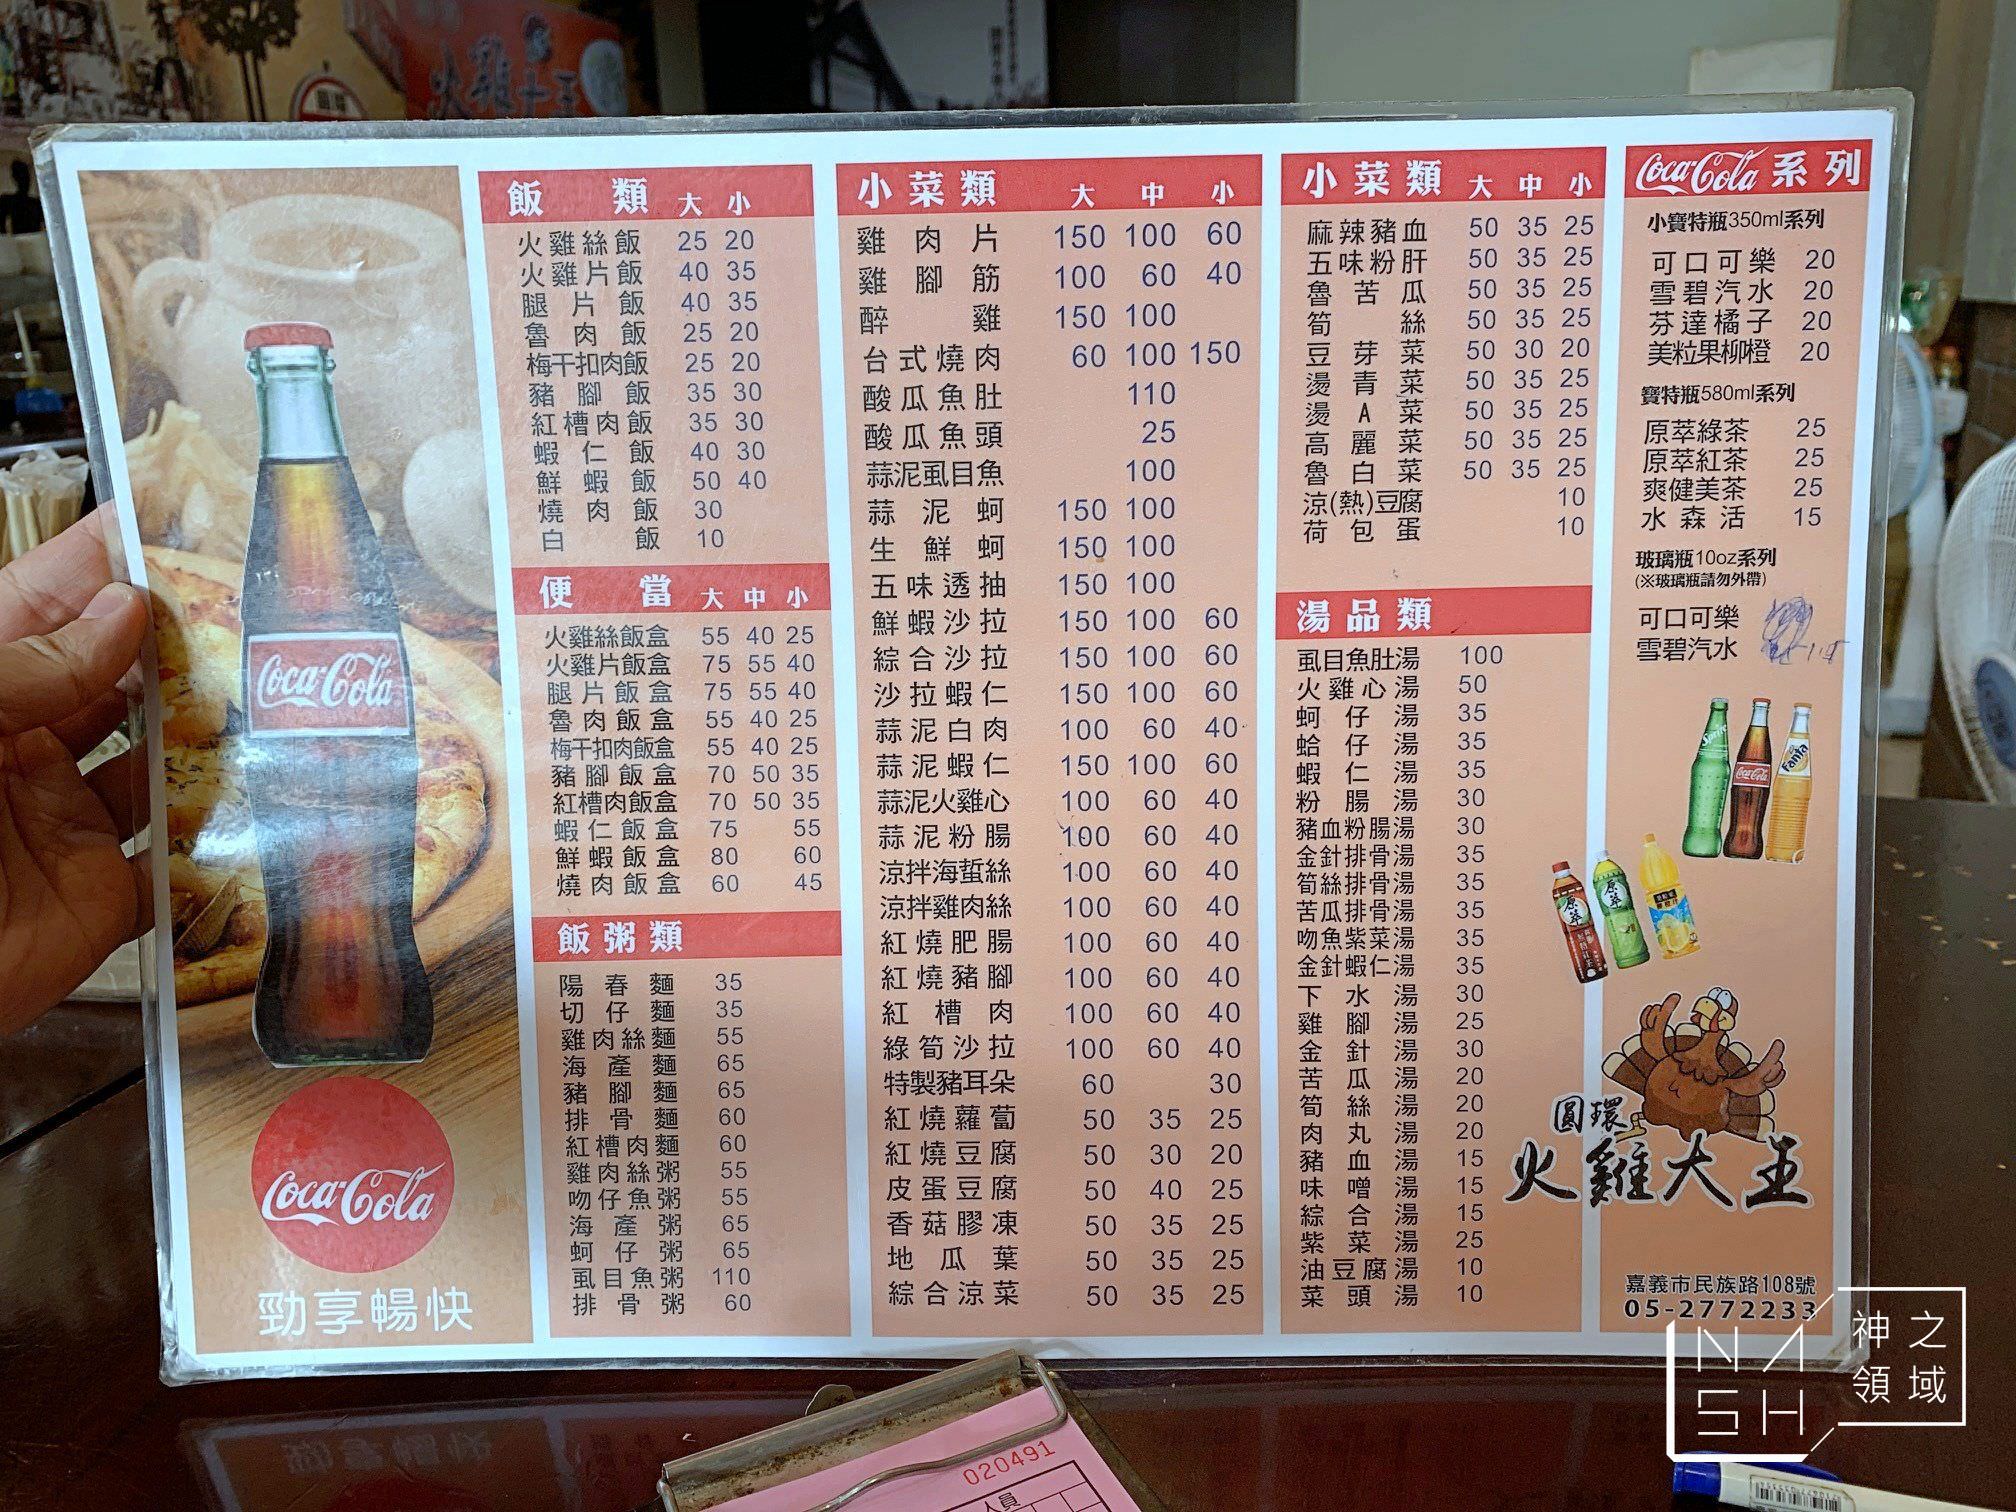 火雞大王
Coca-Cola
Coca-Cola
勁享暢快
飯類 大 小
火雞絲飯 25 20
火雞片飯 40 35
腿片飯 40 35
魯肉飯 25 20
梅干扣肉飯 25 20
豬腳飯 35 30
紅槽肉飯 35 30
蝦仁飯 40 30
鮮蝦飯 50 40
燒肉飯 30
白飯 10
便當 大 中 小
火雞絲飯盒 55 40 25
火雞片飯盒 75 55 40
腿片飯盒 75 55 40
魯肉飯盒 55 40 25
梅干扣肉飯盒 55 40 25
豬腳飯盒 70 50 35
紅槽肉飯盒 70 50 35
蝦仁飯盒 75 55
鮮蝦飯盒 80 60
燒肉飯盒 60 45
飯粥類
陽春麵 35
切仔麵 35
雞肉絲麵 55
海產麵 65
豬腳麵 65
排骨麵 60
紅槽肉麵 60
雞肉絲粥 55
吻仔魚粥 55
海產粥 65
蚵仔粥 65
虱目魚粥 110
排骨粥 60
小菜類 大 中 小
雞肉片 150 100 60
雞腳筋 100 60 40
醉雞 150 100
台式燒肉 60 100 150
酸瓜魚肚 110
酸瓜魚頭 25
蒜泥虱目魚 100
蒜泥蚵 150 100
生鮮蚵 150 100
五味透抽 150 100
鮮蝦沙拉 150 100 60
綜合沙拉 150 100 60
沙拉蝦仁 150 100 60
蒜泥白肉 100 60 40
蒜泥蝦仁 150 100 60
蒜泥火雞心 100 60 40
蒜泥粉腸 100 60 40
涼拌海蜇絲 100 60 40
涼拌雞肉絲 100 60 40
紅燒肥腸 100 60 40
紅燒豬腳 100 60 40
紅槽肉 100 60 40
綠筍沙拉 100 60 40
特製豬耳朵 60 30
紅燒蘿蔔 50 35 25
紅燒豆腐 50 30 20
皮蛋豆腐 50 40 25
香菇膠凍 50 35 25
地瓜葉 50 35 25
綜合涼菜 50 35 25
小菜類 大 中 小
麻辣豬血 50 35 25
五味粉肝 50 35 25
魯苦瓜 50 35 25
筍絲 50 35 25
豆芽菜 50 30 20
燙青菜 50 35 25
燙A菜 50 35 25
高麗菜 50 35 25
魯白菜 50 35 25
涼(熱)豆腐 10
荷包蛋 10
湯品類
虱目魚肚湯 100
火雞心湯 50
蚵仔湯 35
蛤仔湯 35
蝦仁湯 35
粉腸湯 30
豬血粉腸湯 30
金針排骨湯 35
筍絲排骨湯 35
苦瓜排骨湯 35
吻魚紫菜湯 35
金針蝦仁湯 35
下水湯 30
雞腳湯 25
金針湯 30
苦瓜湯 20
筍絲湯 20
肉丸湯 20
豬血湯 15
味噌湯 15
綜合湯 15
紫菜湯 25
油豆腐湯 10
菜頭湯 10
Coca-Cola系列
小寶特瓶350ml系列
可口可樂 20
雪碧汽水 20
芬達橘子 20
美粒果柳橙 20
寶特瓶580ml系列
原萃綠茶 25
原萃紅茶 25
爽健美茶 25
水森活 15
玻璃瓶10oz系列
(※玻璃瓶請勿外帶)
可口可樂
雪碧汽水
Sprite
Coca-Cola
Fanta
原萃
原萃
圓環
火雞大王
嘉義市民族路108號
05-2772233
NASH
神之領域
020491
人員